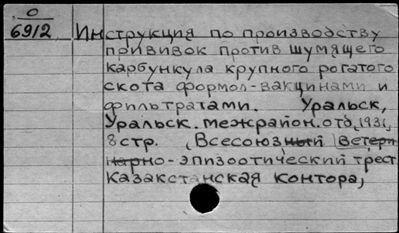 0
6912
Инструкция по производству
прививок против шумящего
карбункула крупного рогатого
скота формол-вакцинами и
фильтратами. Уральск,
Уральск. межрайон. отд, 1931,
8 стр. (Всесоюзный ветери
нарно-эпизоотический трест
Казакстанская контора,